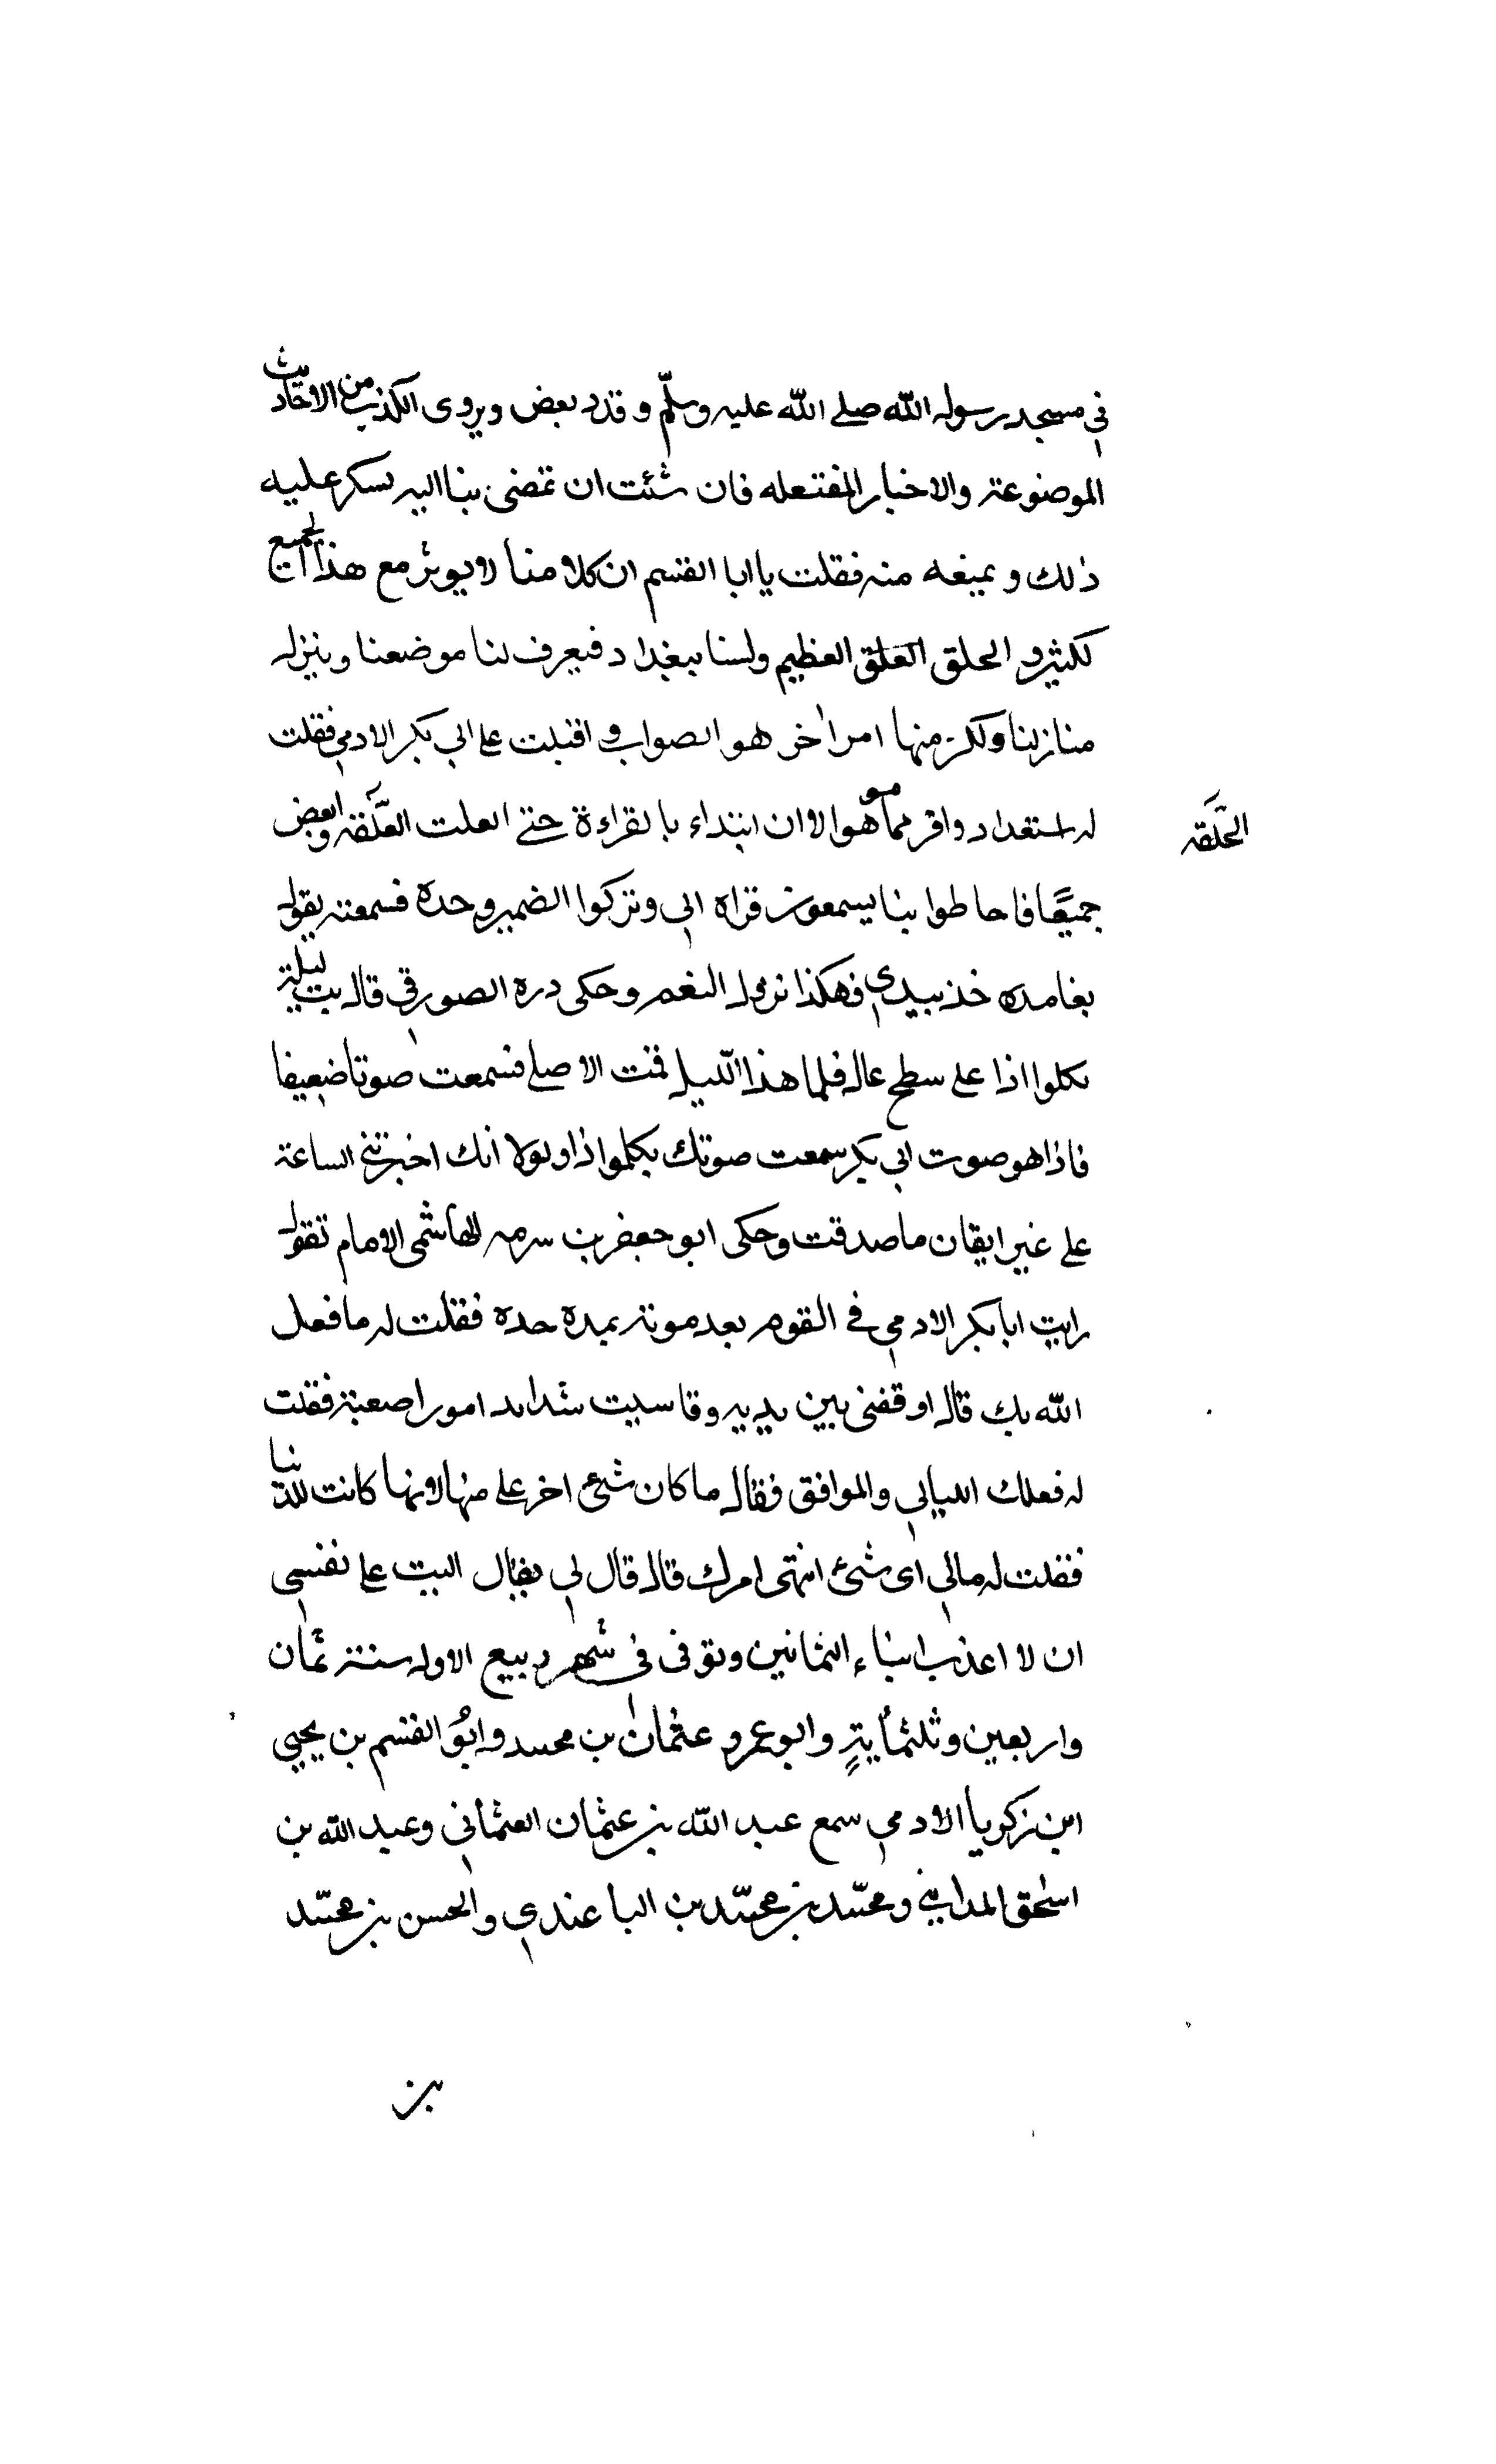 في مسجد رسول الله صلى الله عليه وسلم و قدد بعض ويروى الكذب من الاحاديث
الموضوعة والاخبار المفتعله فان شئت ان تمضى بنا اليه لسكر عليه
ذلك و نمنعه منه فقلت يا ابا القسم ان كلامنا لا يوثر مع هذا الجميع
لكثير و الحلق العلق العظيم ولسنا ببغداد فيعرف لنا موضعنا وينزل
منازلنا ولكن منها امر اخر هو الصواب و اقبلت على ابي بكر الادمي فقلت
له استعداد واقر مما هو الا ان ابتداء بالقراءة حتى العلت العلقه وابعض
الحلقه
جميعا فاحاطوا بنا يسمعون قراه ابي وتركوا الضمير وحده فسمعته يقول
بغامده خذ بيدي فهكذا تزول النغم وحكى دره الصورقي قال بت ليلة
بكلوا اذا على سطح عال فلما هذا الليل قمت الاصلى فسمعت صوتا ضعيفا
فاذا هو صوت ابي بكر سمعت صوتك بكلموا ذا ولولا انك اخبرتني الساعة
على غير ايقان ما صدقت وحكى ابو جعفر بن سرمه الهاشمى الامام تقول
رايت ابا بكر الادمي في القوم بعد موته بمده حده فقلت له ما فعل
الله بك قال اوقفنى بين يديه وقاسيت شدايد امورا صعبة فقلت
له فعلك الليالي والموافق فقال ما كان شيء اخر على منها لانها كانت للدنيا
فقلت له مالي اى شئ انتهى امرك قال قال لي بقال البت على نفسي
ان لا اعذب ابناء الثمانين وتوفى فى شهر ربيع الاول سنة ثمان
واربعين وثلثمأية وابو عمرو عثمان بن محمد وابو القسم بن يحيي
ابن زكريا الادمي سمع عبد الله بن عثمان العثماني وعبد الله بن
اسحق المدايني ومحمد بن محمد بن الباعندي والحسن بن محمد
بن